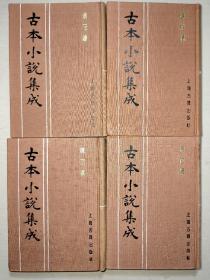 古本小說集成
上海古籍出版社
古本小說集成
上海古籍出版社
古本小說集成
上海古籍出版社
古本小說集成
上海古籍出版社